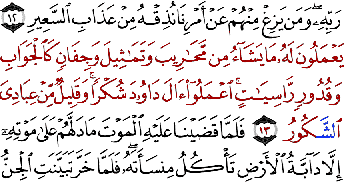 رَبِّهِۦ ۖ وَمَن يَزِغْ مِنْهُمْ عَنْ أَمْرِنَا نُذِقْهُ مِنْ عَذَابِ ٱلسَّعِيرِ ١٢
يَعْمَلُونَ لَهُۥ مَا يَشَآءُ مِن مَّحَـٰرِيبَ وَتَمَـٰثِيلَ وَجِفَانٍ كَٱلْجَوَابِ
وَقُدُورٍ رَّاسِيَـٰتٍ ۚ ٱعْمَلُوٓا۟ ءَالَ دَاوُۥدَ شُكْرًا ۚ وَقَلِيلٌ مِّنْ عِبَادِىَ
ٱلشَّكُورُ ١٣ فَلَمَّا قَضَيْنَا عَلَيْهِ ٱلْمَوْتَ مَا دَلَّهُمْ عَلَىٰ مَوْتِهِۦٓ
إِلَّا دَآبَّةُ ٱلْأَرْضِ تَأْكُلُ مِنسَأَتَهُۥ ۖ فَلَمَّا خَرَّ تَبَيَّنَتِ ٱلْجِنُّ